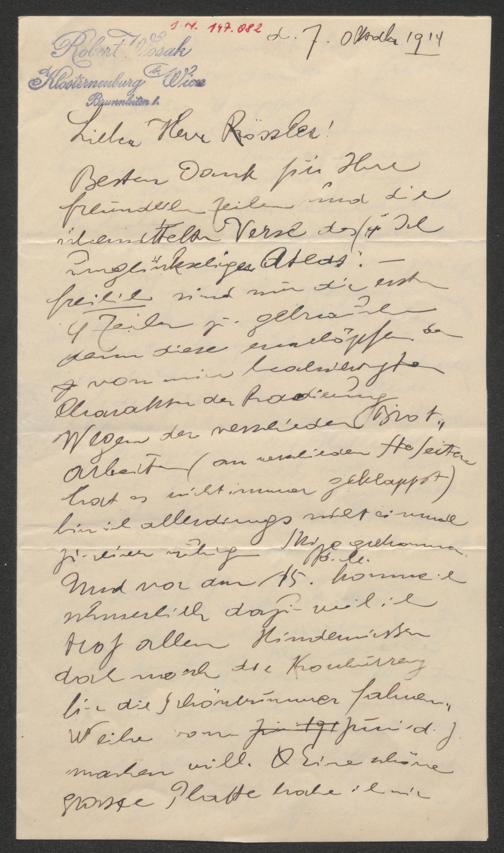 J. N. 147.082
d. 7. Oktober 1914
Robert Wosak
Klosterneuburg bei Wien
Lieber Herr Rössler!
Besten Dank für Ihre
freundlichen Zeilen und die
übermittelten Verse des „Ich
unglückseliger Atlas“. –
freilich sind nur die ersten
4 Zeilen zu gebrauchen
denn diese erschöpfen den
von mir beabsichtigten
Charakter der Radierung
Wegen der verschiedenen Brot-
arbeiten (an verschiedenen
hat es nicht immer geklappt)
bin ich allerdings nicht einmal
zu einer ruhigen Skizze gekommen.
Und vor dem 15. komme ich
schwerlich dazu weil ich
trotz allen Hindernissen
doch noch die Konkurrenz
für die Schönbrunner Fahnen-
Weihe vom Juni d. J.
machen will. Eine schöne
grosse Platte habe ich mir